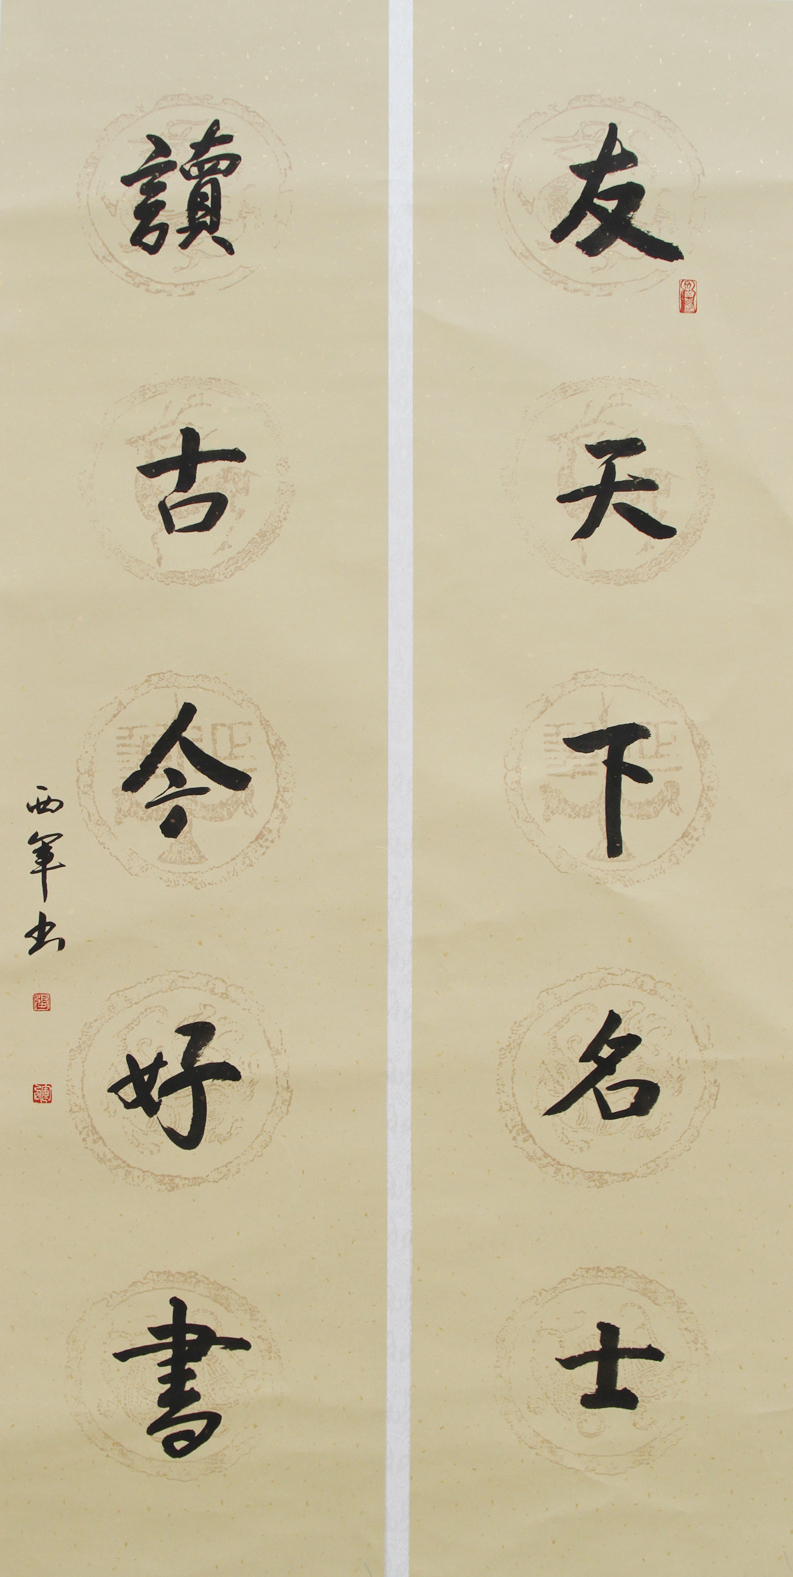 友天下名士
讀古今好書
西軍书